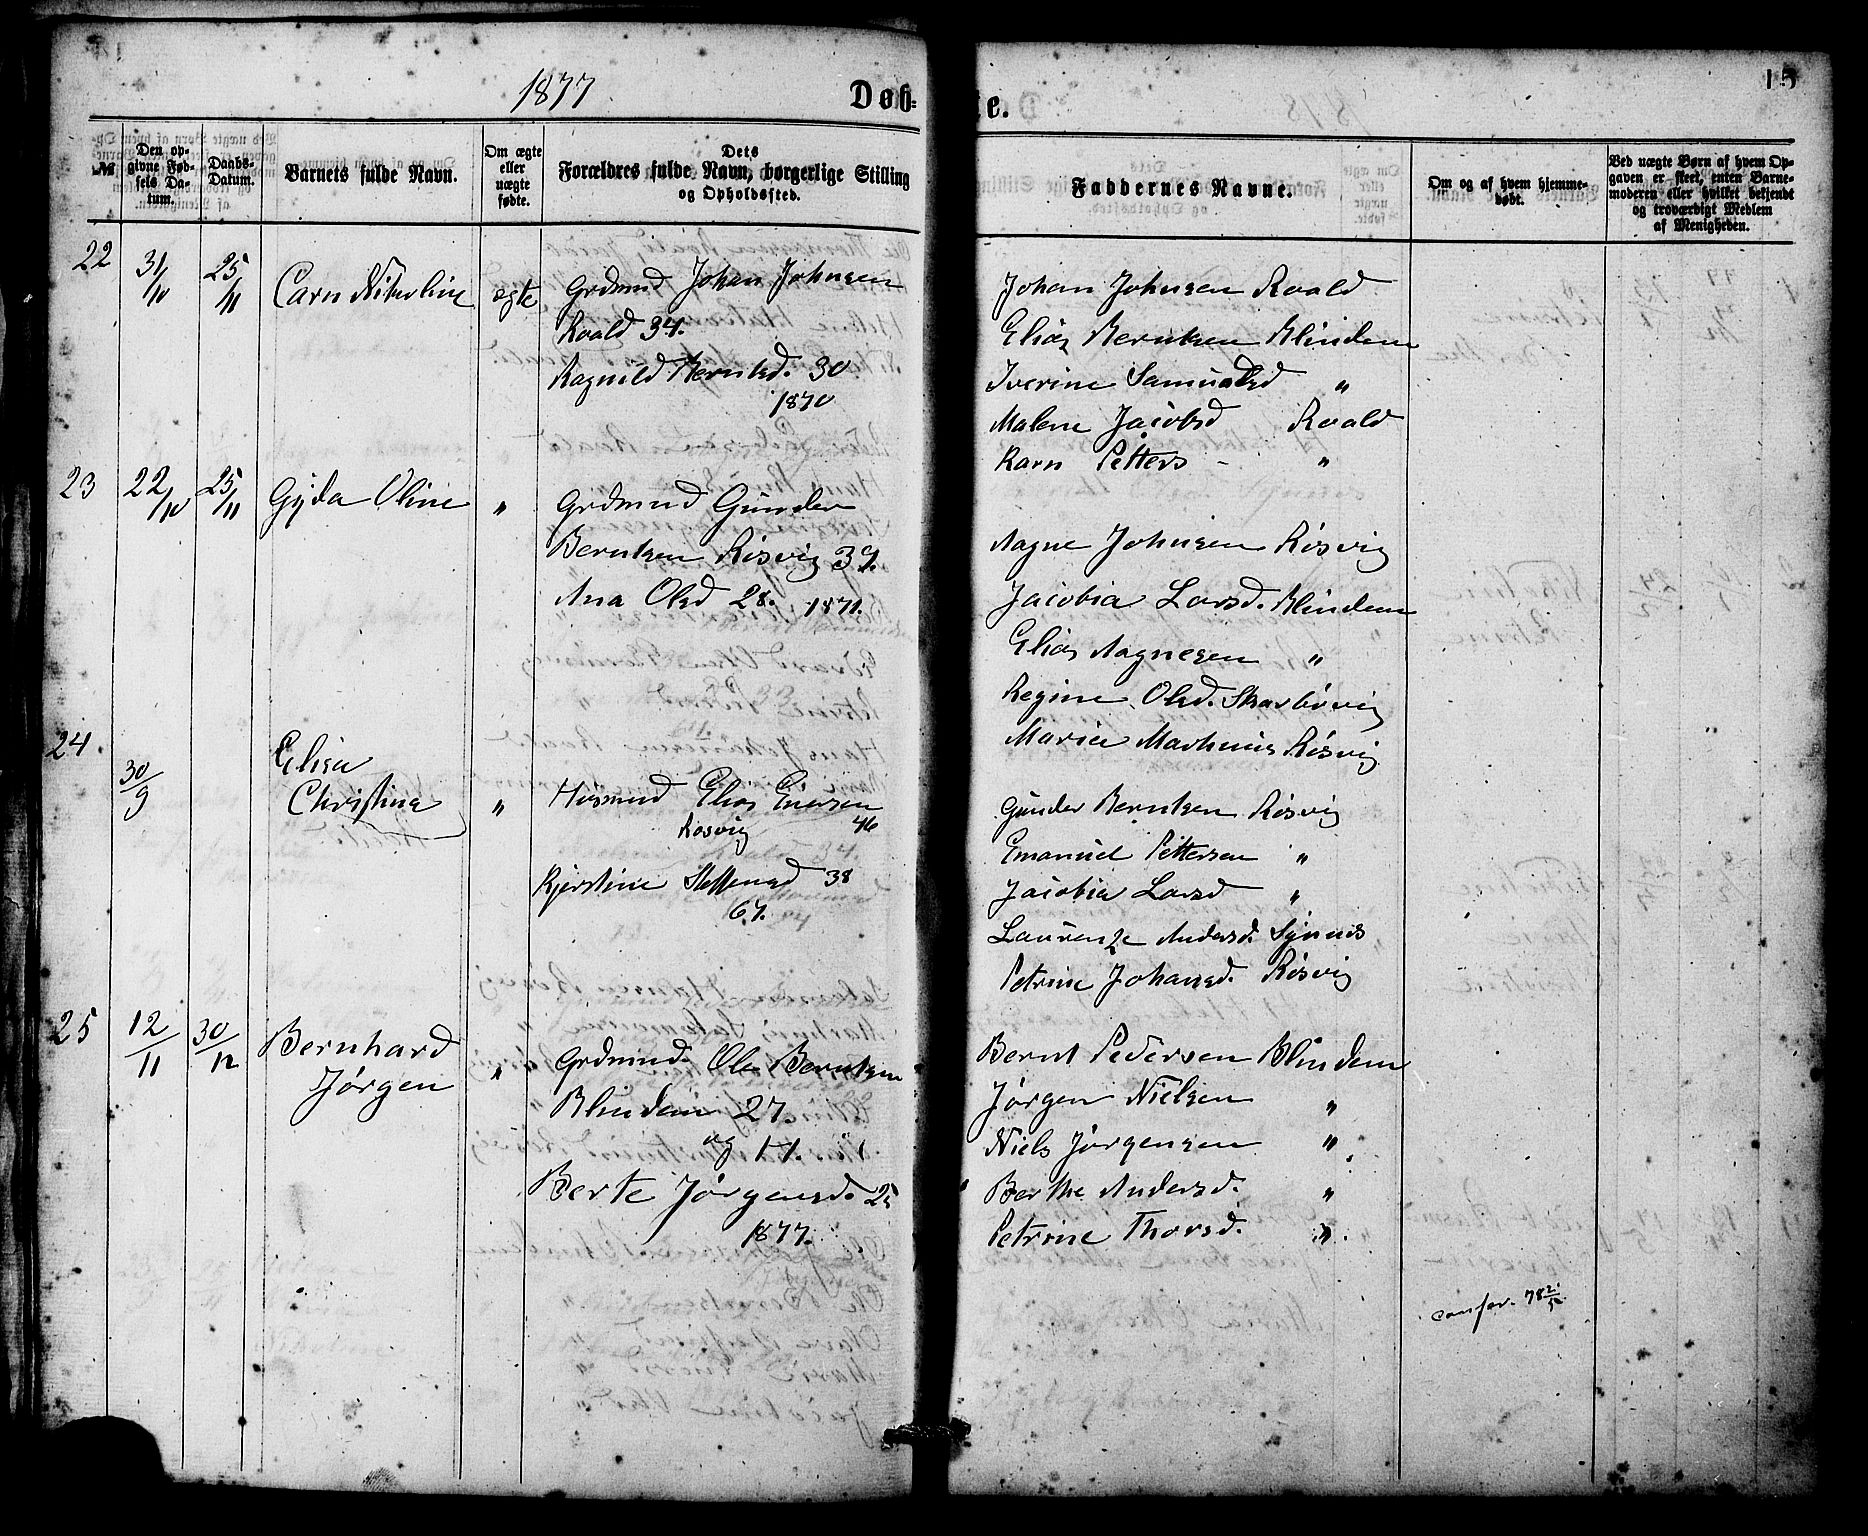 1877
Døb-
te.
15
№
Den op-
givne Fød-
sels Da-
tum.
Daabs-
Datum.
Barnets fulde Navn.
Om ægte
eller
uægte
fødte.
Dets
Forældres fulde Navn, borgerlige Stilling
og Opholdssted.
Faddernes Navne.
Om og af hvem hjemme-
døbt.
Ved uægte Børn af hvem Op-
gaven er skeet, enten Barne-
moderen eller hvilket bekjendt
og troværdigt Medlem
af Menigheden.
22 31/10 25/11 Carn Nikoline ægte Grdmnd Johan Johnsen
Roald 34.
Ragnild Berntsd. 30
1870
Johan Johnsen Roald
Elias Berntsen Blindem
Iverine Samuelsd "
Malene Jacobsd Roald
Karn Petters - "
23 22/10 25/11 Gyda Oline " Grdmnd Gunder
Berntsen Røsvig 39.
Ana Olsd 28. 1871.
Aagne Johnsen Røsvig
Jacobia Larsd. Blindem
Elias Aagnesen "
Regine Olsd. Skarbøvig
Maria Røsvig
24. 30/9 Elisa
Christina " Husmnd Elias Einersen
Røsvig 46
Kjerstine Steffensd 38
67.
Gunder Berntsen Røsvig
Emanuel Pettersen "
Jacobia Larsd "
Andersd. Synnes
Petrine Johansd. Røsvig
25 12/11 30/12 Bernhard
Jørgen " Grdmnd. Ole Berntsen
Blindem 27
og H.
Berte Jørgensd. 25
1877.
Bernt Pedersen Blindem
Jørgen Nielsen "
Niels Jørgensen "
Berthe Andersd. "
Petrine Thorsd. "
confer. 78 2/5